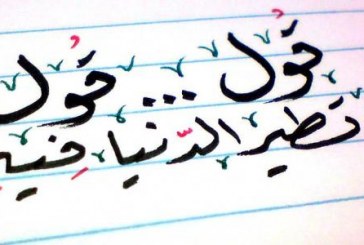 قُول ... قُول
تطير الدّنيا